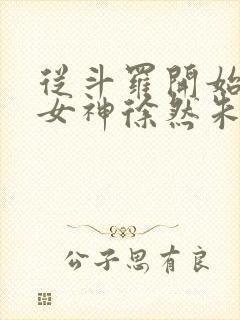 從斗羅開始
女神徐然朱
公子思有良